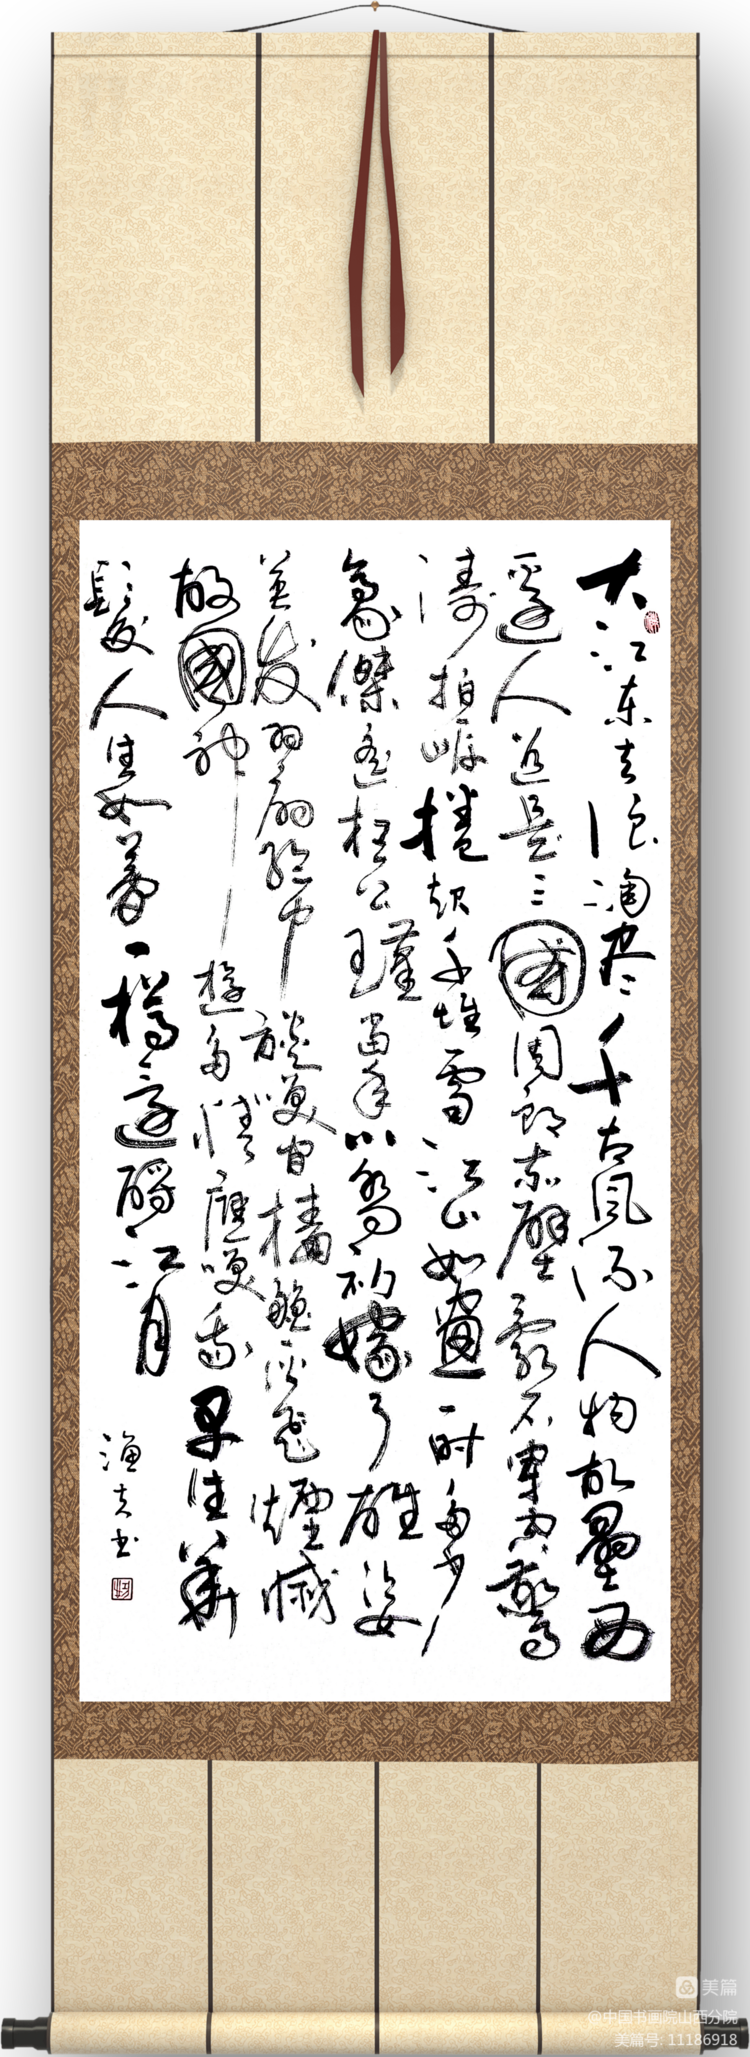 大江东去浪淘尽千古风流人物故壘西
邊人道是三國周郎赤壁亂石穿空驚
濤拍岸捲起千堆雪江山如畫一时多少
豪傑遥想公瑾當年小喬初嫁了雄姿
英发羽扇纶巾談笑間檣艣灰飛煙滅
故國神遊多情應笑我早生華
髮人生如夢一樽還酹江月
渔夫书
美篇
@中国书画院山西分院
美篇号: 11186918